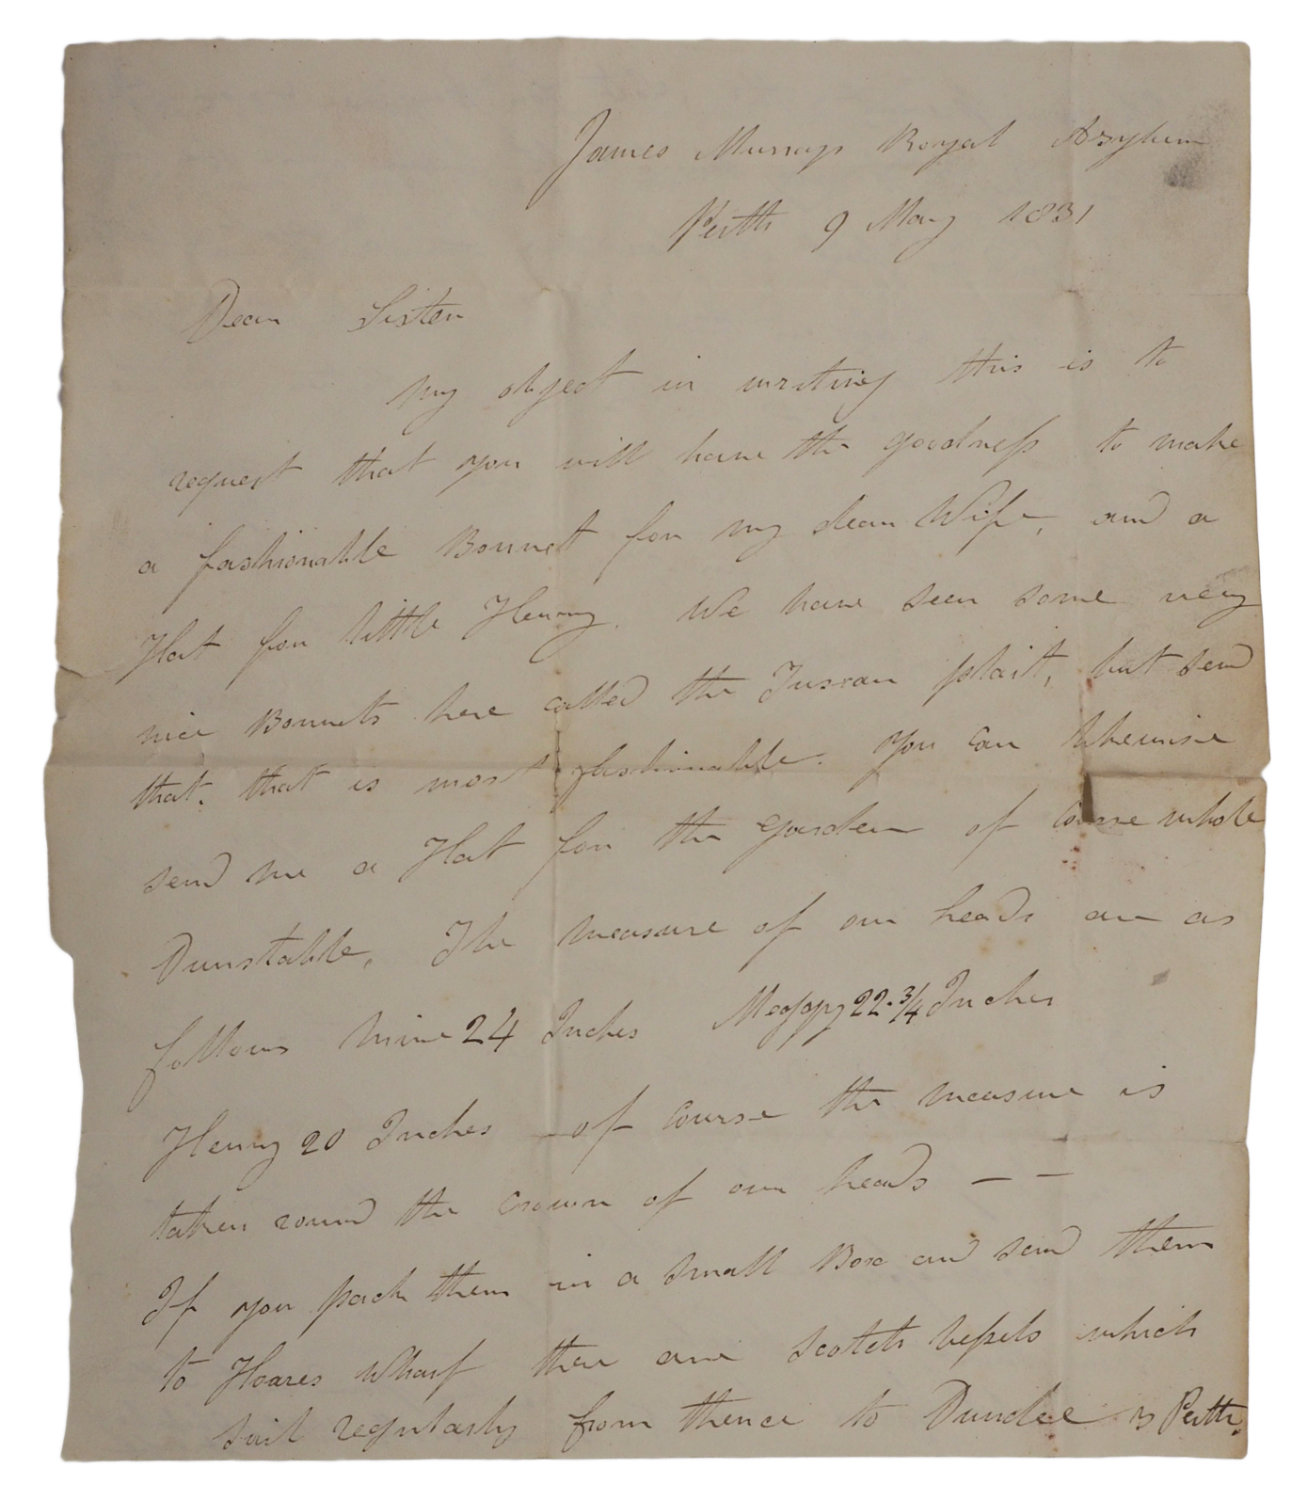 James Murrays Royal Asylum
Perth 9 May 1831
Dear Sister
My object in writing this is to
request that you will have the goodneſs to make
a fashionable Bonnet for my dear Wife, and a
Hat for little Henry. We have seen some very
nice Bonnets here called the Tuscan plait, but send
that. that is most fashionable. You can likewise
send me a Hat for the garden of course whole
Dunstable, The measure of our heads are as
follows mine 24 Inches 22.3/4 Inches
Henry 20 Inches - of course the measure is
taken round the crown of our heads — —
If you pack them in a small Box and send them
to Hoares Wharf there are Scotch veſsels which
sail regularly from thence to Dundee & Perth.